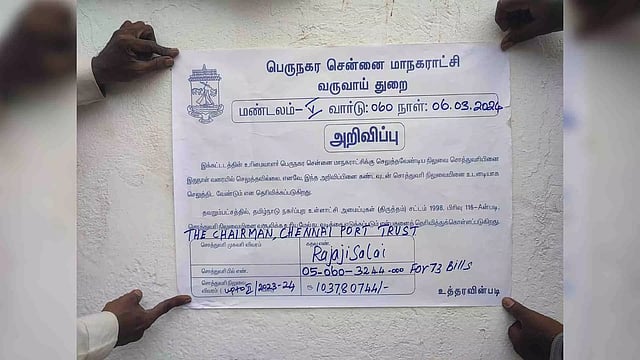 பெருநகர சென்னை மாநகராட்சி
வருவாய் துறை
மண்டலம்-V வார்டு: 060 நாள்: 06.03.2024
அறிவிப்பு
இக்கட்டடத்தின் உரிமையாளர் பெருநகர சென்னை மாநகராட்சிக்கு செலுத்தவேண்டிய நிலுவை சொத்துவரியினை
இதுநாள் வரையில் செலுத்தவில்லை. எனவே, இந்த அறிவிப்பினை கண்டவுடன் சொத்துவரி நிலுவையினை உடனடியாக
செலுத்திட வேண்டும் என தெரிவிக்கப்படுகிறது.
தவறும்பட்சத்தில், தமிழ்நாடு நகர்ப்புற உள்ளாட்சி அமைப்புகள் (திருத்தம்) சட்டம் 1998, பிரிவு 116-Aன்படி,
தெரிவித்துக்கொள்ளப்படுகிறது.
THE CHAIRMAN, CHENNAI PORT TRUST
சொத்துவரி முகவரி விவரம் கதவுஎண். Rajaji Salai
சொத்துவரிபில் எண். 05-060-3244-000 For 73 Bills
சொத்துவரி நிலுவை
விவரம் ( upto II/2023-24 103780744/-
உத்தரவின்படி